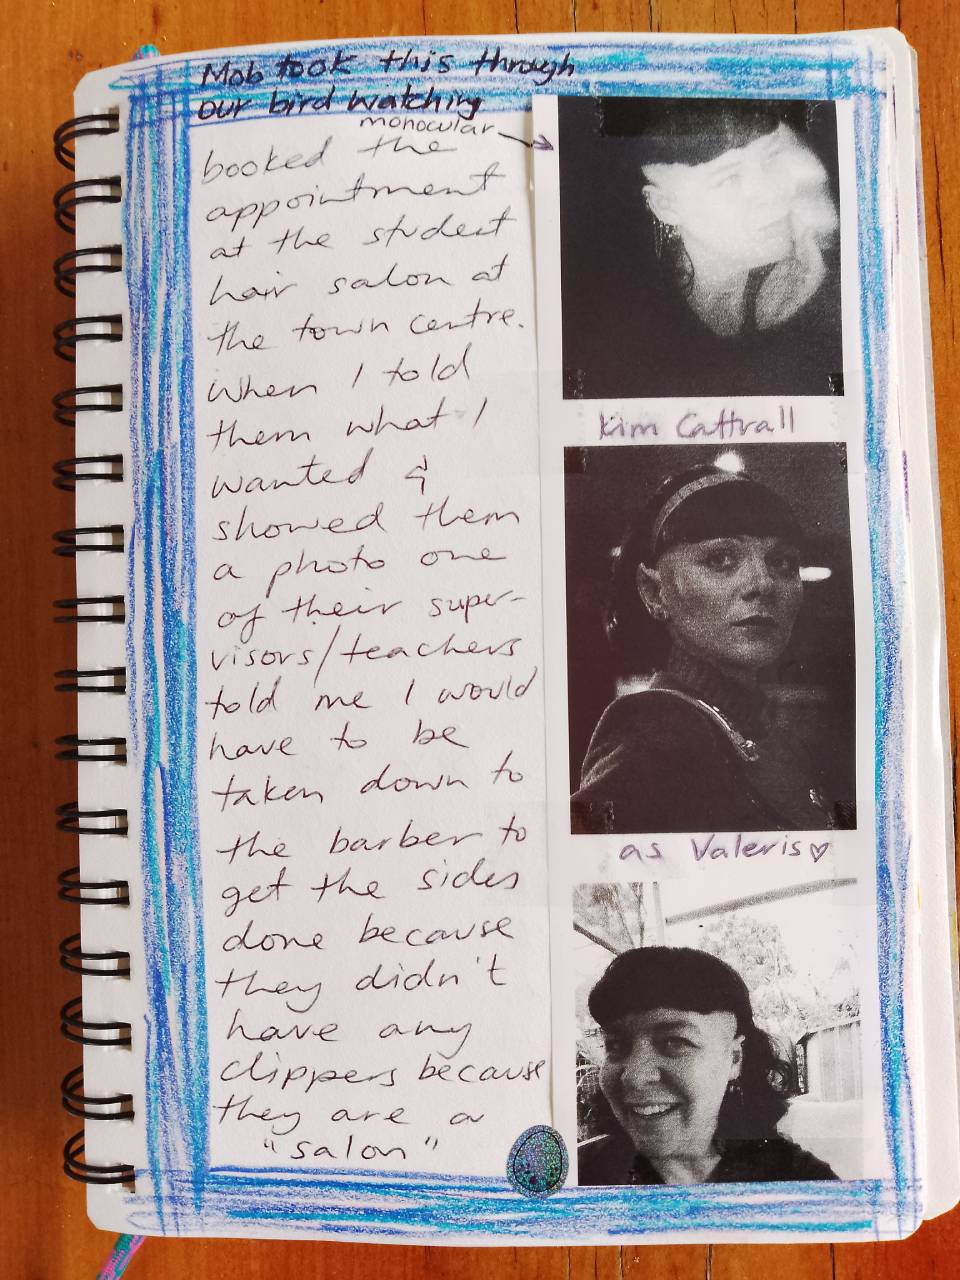 Mob took this through
our bird watching
monocular
booked the
appointment
at the student
hair salon at
the town centre.
When I told
them what I
wanted &
showed them
a photo one
of their super-
visors/teachers
told me I would
have to be
taken down to
the barber to
get the sides
done because
they didn't
have any
clippers because
they are a
"salon"
Kim Cattrall
as Valeris♡